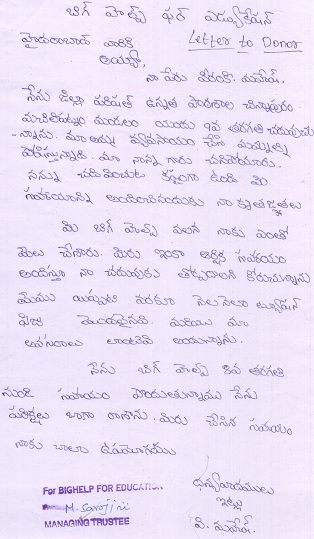 బిగ్ హెల్ప్ ఫర్ ఎడ్యుకేషన్
హైదరాబాద్ వారికి
Letter to Donor
అయ్యా,
నా పేరు వీరంకి. మహేష్.
నేను జిల్లా పరిషత్ ఉన్నత పాఠశాల చిన్నాపురం
మచిలీపట్నం మండలం యందు 9వ తరగతి చదువుచు
-న్నాను. మా అమ్మ వ్యవసాయం చేసి మమ్మల్ని
పోషిస్తున్నాది. మా నాన్న గారు చనిపోయారు.
నన్ను చదివించుట కష్టంగా ఉంది మీ
సహయాన్ని అందించినందుకు నా కృతజ్ఞతలు
మీ బిగ్ హెల్ప్ వలన నాకు ఎంతో
మేలు చేశారు. మీరు ఇంకా ఆర్థిక సహయం
అందిస్తూ నా చదువుకు తోడ్పడాలని కోరుచున్నాను
మేము ఇప్పటి వరకూ నెల నెలా ట్యూషన్
ఫీజు మరియు మా
అవసరాలు
నేను బిగ్ హెల్ప్ 6వ తరగతి
నుండి సహయం పొందుతున్నాను నేను
పరీక్షలు బాగా రాశాను. మీరు చేసిన సహయం
నాకు చాలా ఉపయోగము
ధన్యవాదములు
ఇట్లు
వి. మహేష్.
For BIGHELP FOR EDUCATION
M. Sarojini
MANAGING TRUSTEE